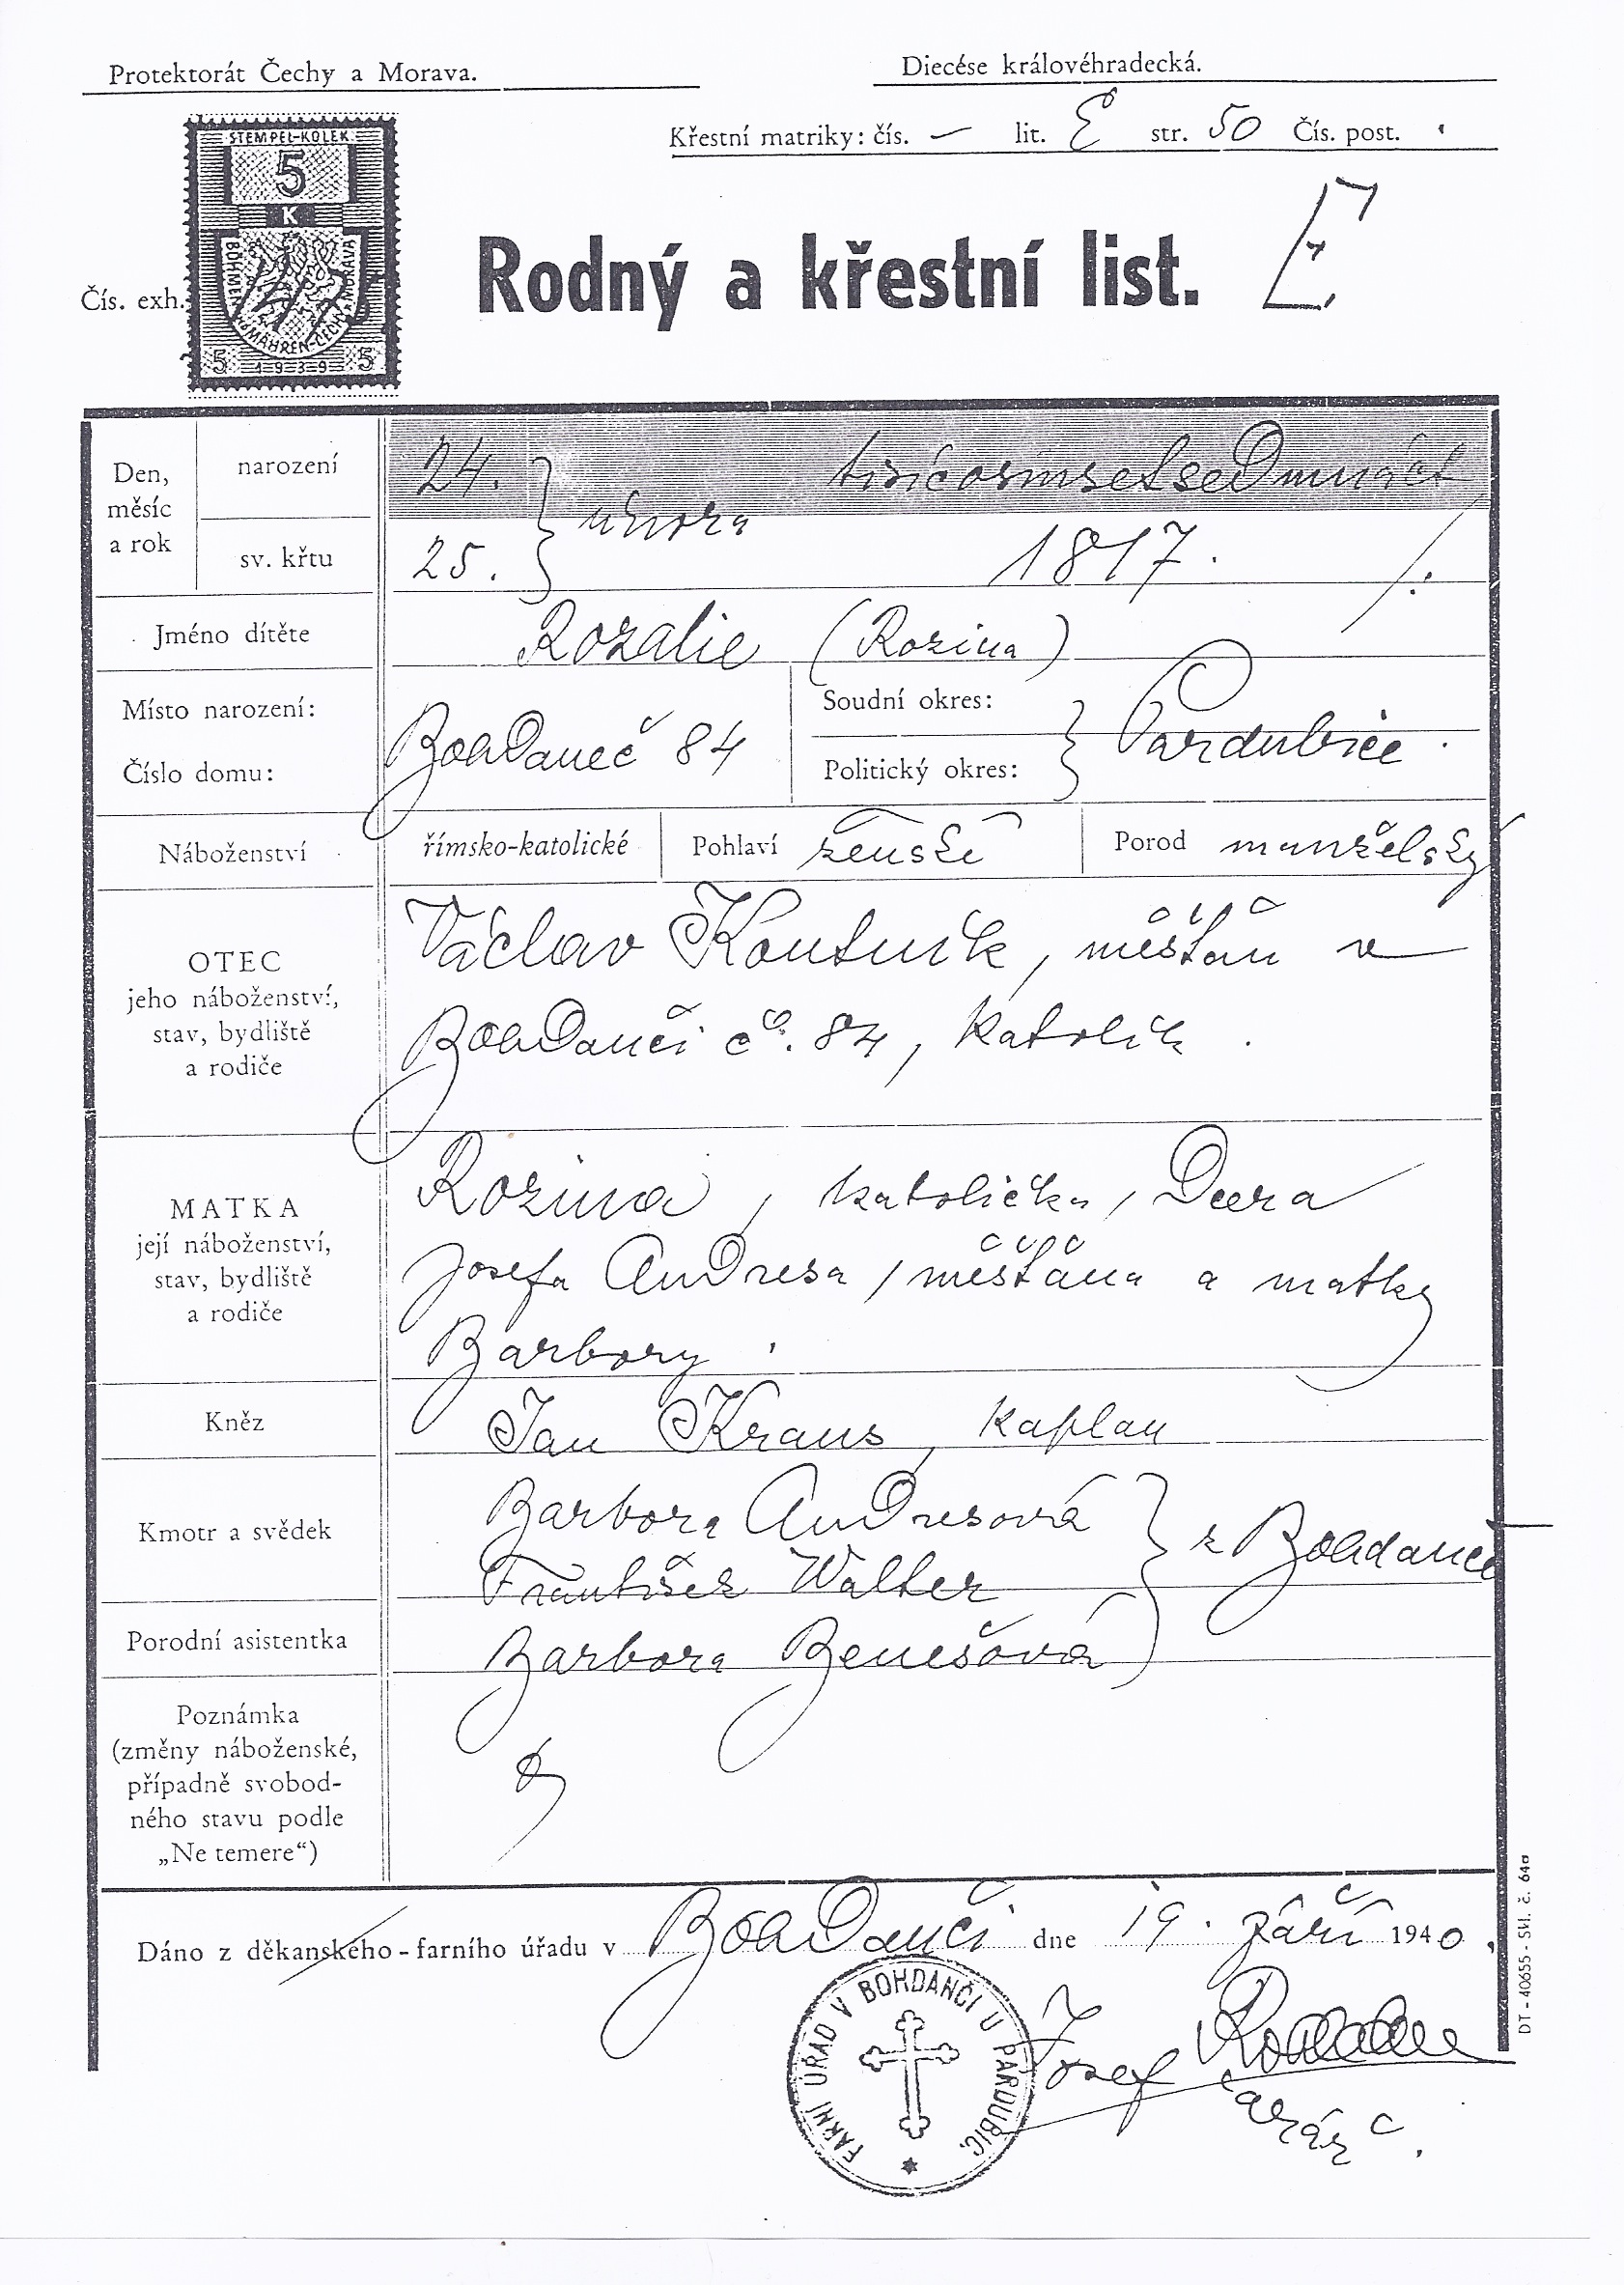 Protektorát Čechy a Morava.
Diecése královéhradecká.
Křestní matriky: čís. — lit. E str. 50 Čís. post.
STEMPEL-KOLEK
5
K
BÖHMEN u. MÄHREN-ČECHY a MORAVA
5 1939 5
Čís. exh.
Rodný a křestní list. E
Den, měsíc a rok
narození
24. února tisícosmsetsedmnáct
sv. křtu
25. 1817.
Jméno dítěte
Rozalie (Rozina)
Místo narození:
Číslo domu:
Bohdaneč 84
Soudní okres:
Politický okres:
Pardubice.
Náboženství
římsko-katolické
Pohlaví ženské
Porod manželský
OTEC
jeho náboženství,
stav, bydliště
a rodiče
Václav Koutník, měšťan v
Bohdanči č. 84, katolík.
MATKA
její náboženství,
stav, bydliště
a rodiče
Rozina, katolička, dcera
Josefa Andresa, měšťana a matky
Barbory.
Kněz
Jan Kraus, kaplan
Kmotr a svědek
Barbora Andresová
František Walter
z Bohdanče
Porodní asistentka
Barbora Benešová
Poznámka
(změny náboženské,
případně svobod-
ného stavu podle
„Ne temere“)
Dáno z děkanského - farního úřadu v Bohdanči dne 19. září 1940.
FARNÍ ÚŘAD V BOHDANČI U PARDUBIC.
Josef
farář.
DT - 40655 - Skl. č. 64a